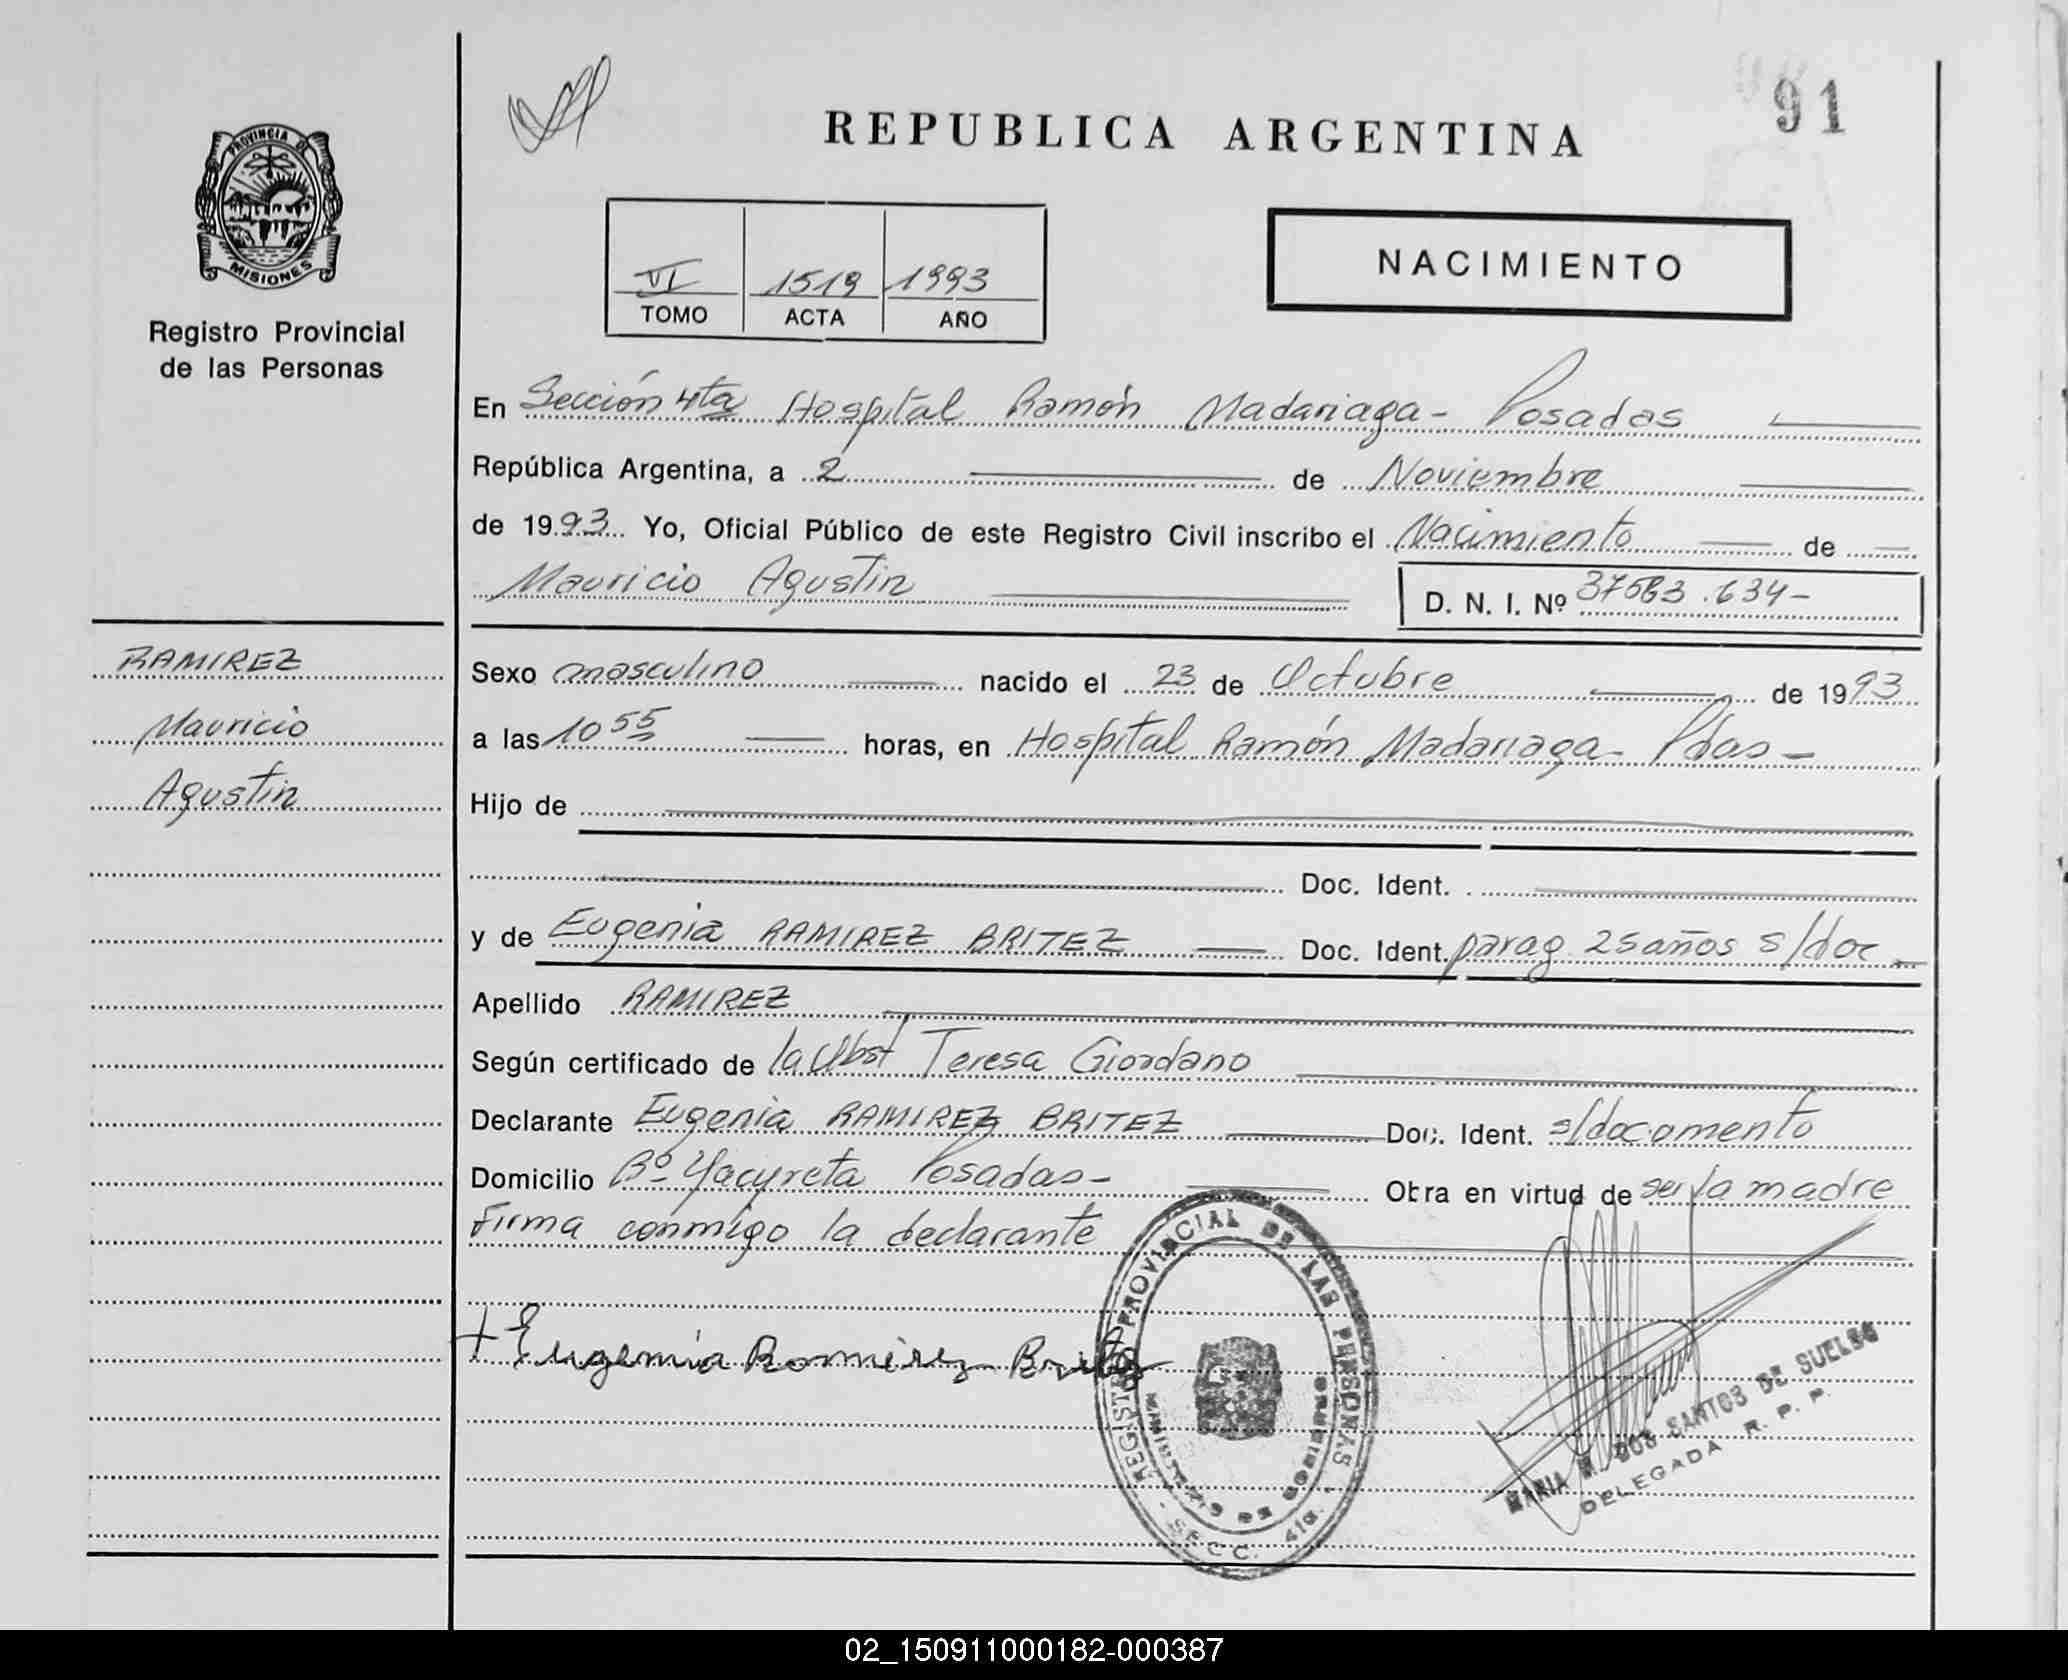 91
REPUBLICA ARGENTINA
PROVINCIA DE
MISIONES
Registro Provincial
de las Personas
VI 1519 1993
TOMO ACTA AÑO
NACIMIENTO
En Sección 4ta Hospital Ramón Madariaga - Posadas
República Argentina, a 2 de Noviembre
de 1993 Yo, Oficial Público de este Registro Civil inscribo el Nacimiento de
Mauricio Agustin D. N. I. Nº 37583.634-
RAMIREZ
Mauricio
Agustin
Sexo masculino nacido el 23 de Octubre de 1993
a las 10 55 horas, en Hospital Ramón Madariaga - Pdas -
Hijo de
Doc. Ident.
y de Eugenia RAMIREZ BRITEZ Doc. Ident. parag 25 años s/doc
Apellido RAMIREZ
Según certificado de la Obst Teresa Giordano
Declarante Eugenia RAMIREZ BRITEZ Doc. Ident. s/documento
Domicilio Bº Yacyreta Posadas - Obra en virtud de ser la madre
Firma conmigo la declarante
+ Eugenia Ramirez Britez
REGISTRO PROVINCIAL DE LAS PERSONAS
MINISTERIO DE GOBIERNO
- SECC. 4ta. -
MARIA M. DOS SANTOS DE SUELDO
DELEGADA R. P. P.
02_150911000182-000387